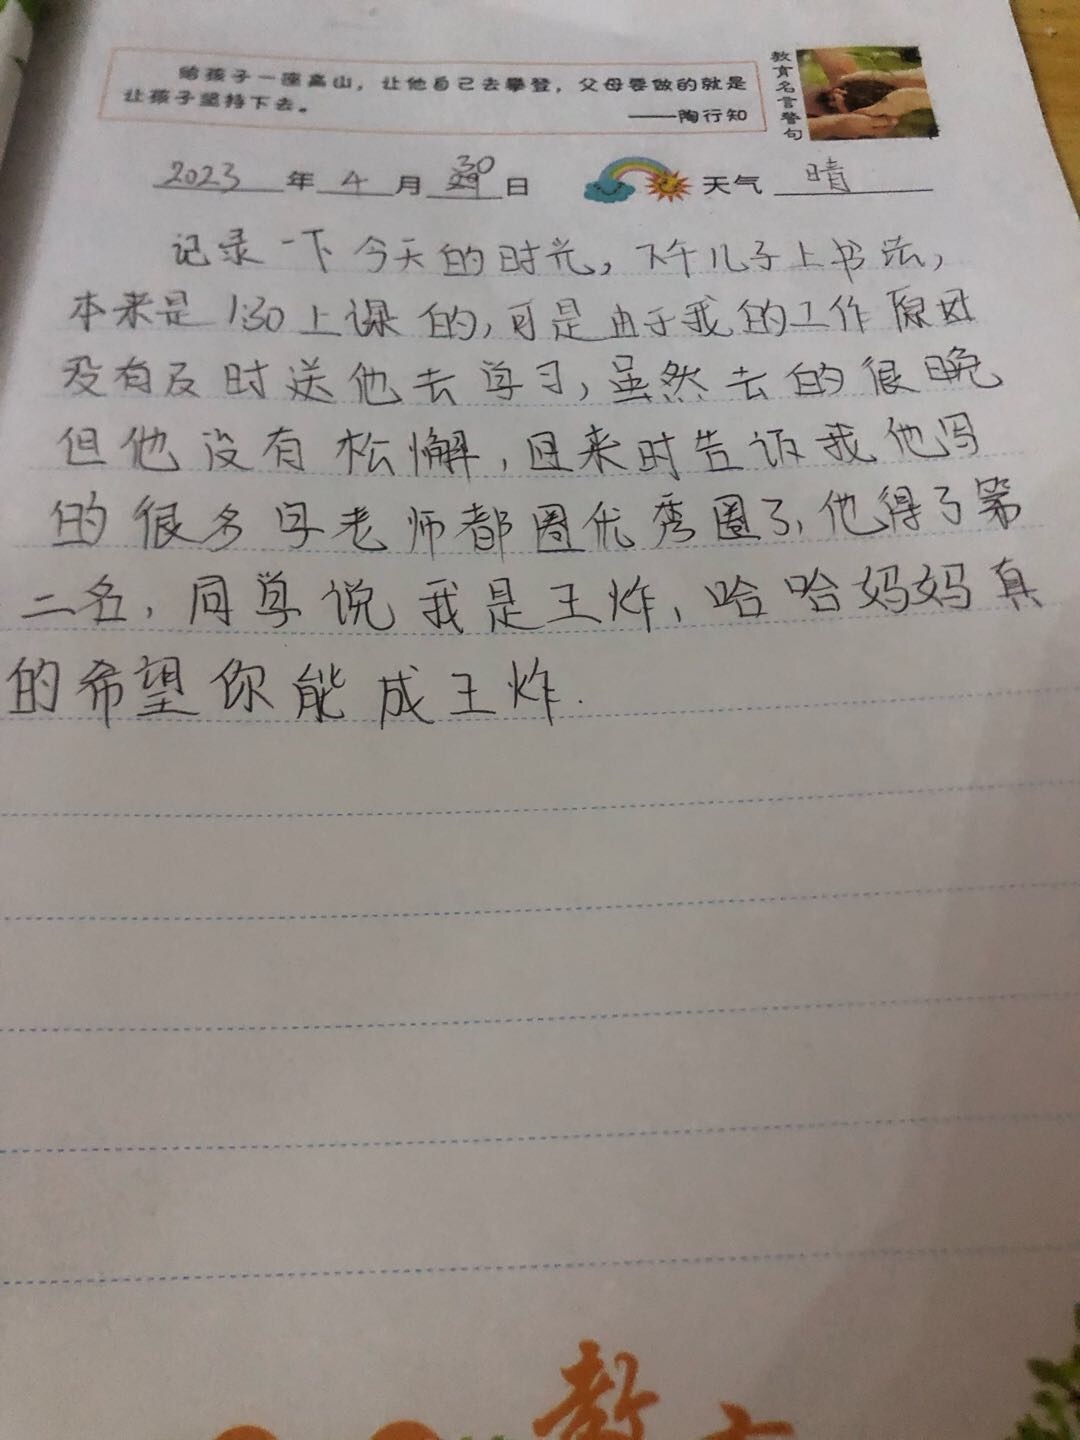 给孩子一座高山，让他自己去攀登，父母要做的就是
让孩子坚持下去。
——陶行知
教育名言警句
2023年4月30日 天气 晴
记录一下今天的时光，下午儿子上书法，
本来是1:30上课的，可是由于我的工作原因
没有及时送他去学习，虽然去的很晚
但他没有松懈，回来时告诉我他写
的很多字老师都圈优秀圈了，他得了第
二名，同学说我是王炸，哈哈妈妈真
的希望你能成王炸.
教